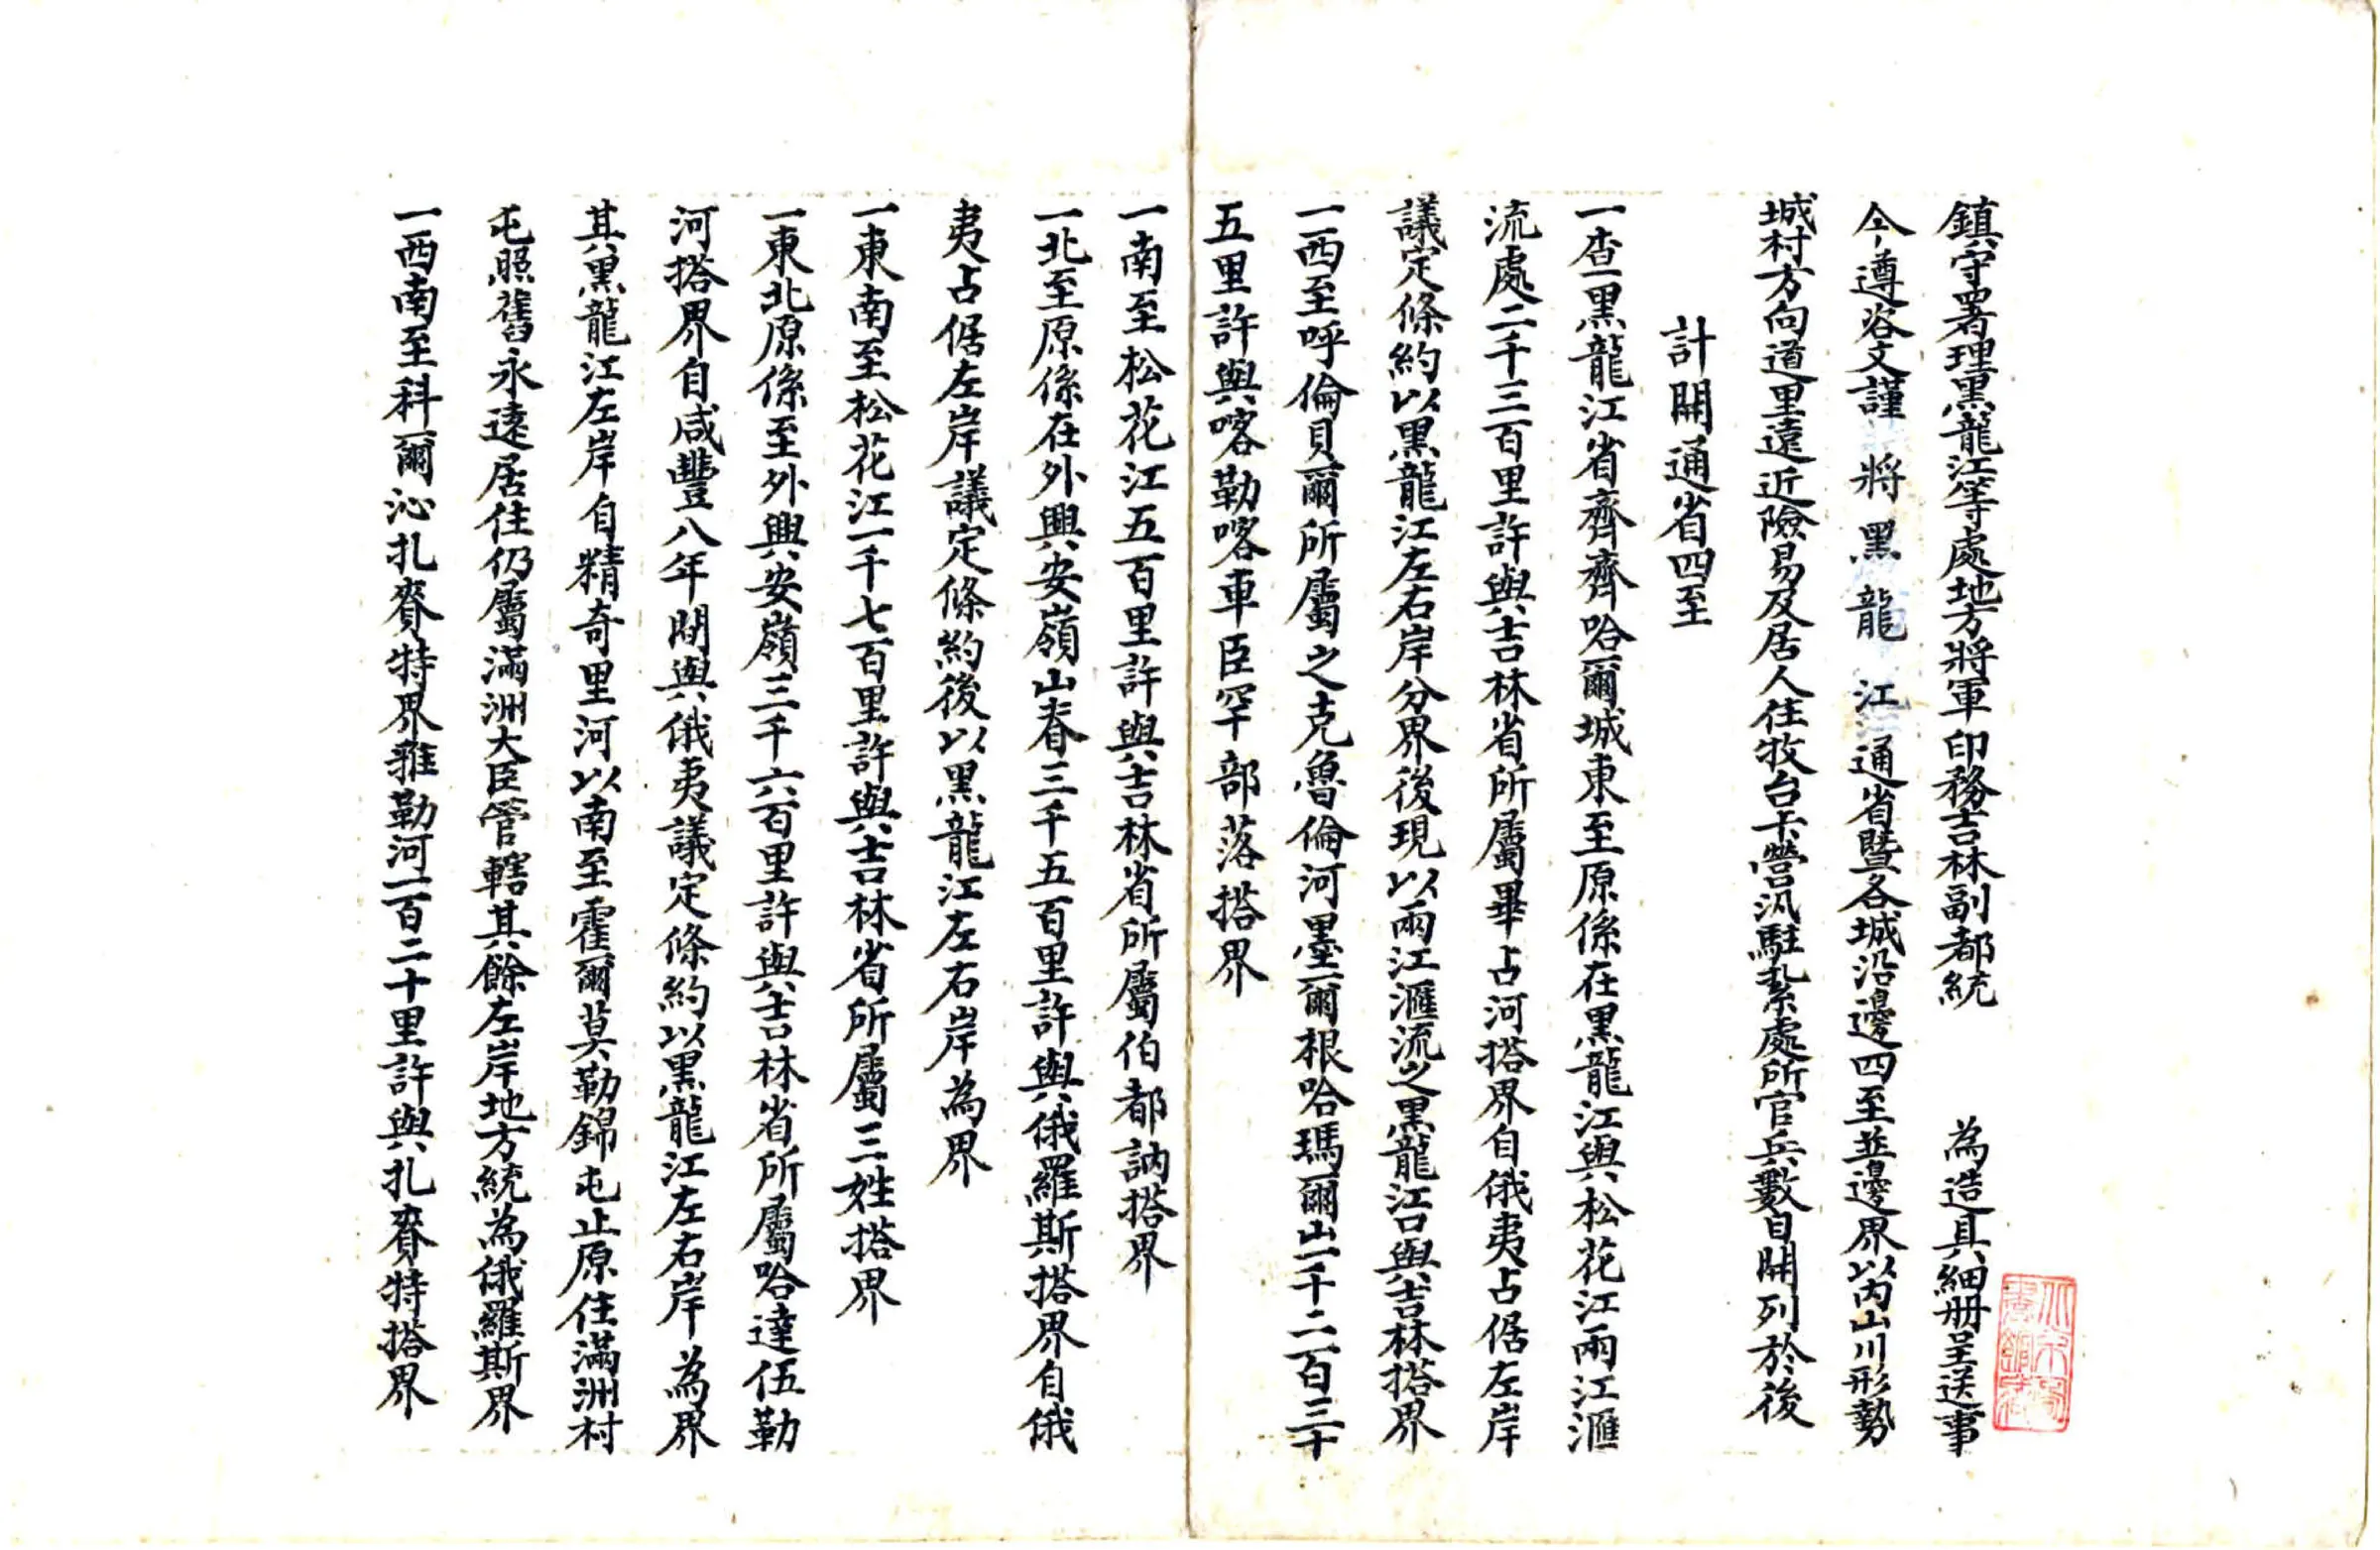 鎮守署理黑龍江等處地方將軍印務吉林副都統　為造具細冊呈送事
今遵咨文謹將黑龍江通省暨各城沿邊四至並邊界以內山川形勢
城村方向道里遠近險易及居人住牧台卡營汛駐紮處所官兵數目開列於後
計開通省四至
一查黑龍江省齊齊哈爾城東至原係在黑龍江與松花江兩江滙
流處二千三百里許與吉林省所屬畢占河搭界自俄夷占倨左岸
議定條約以黑龍江左右岸分界後現以兩江滙流之黑龍江口與吉林搭界
一西至呼倫貝爾所屬之克魯倫河墨爾根哈瑪爾山一千二百三十
五里許與喀勒喀車臣罕部落搭界
一南至松花江五百里許與吉林省所屬伯都訥搭界
一北至原係在外興安嶺山春三千五百里許與俄羅斯搭界自俄
夷占倨左岸議定條約後以黑龍江左右岸為界
一東南至松花江一千七百里許與吉林省所屬三姓搭界
一東北原係至外興安嶺三千六百里許與吉林省所屬哈達伍勒
河搭界自咸豐八年間與俄夷議定條約以黑龍江左右岸為界
其黑龍江左岸自精奇里河以南至霍爾莫勒錦屯止原住滿洲村
屯照舊永遠居住仍屬滿洲大臣管轄其餘左岸地方統為俄羅斯界
一西南至科爾沁扎賚特界雅勒河一百二十里許與扎賚特搭界